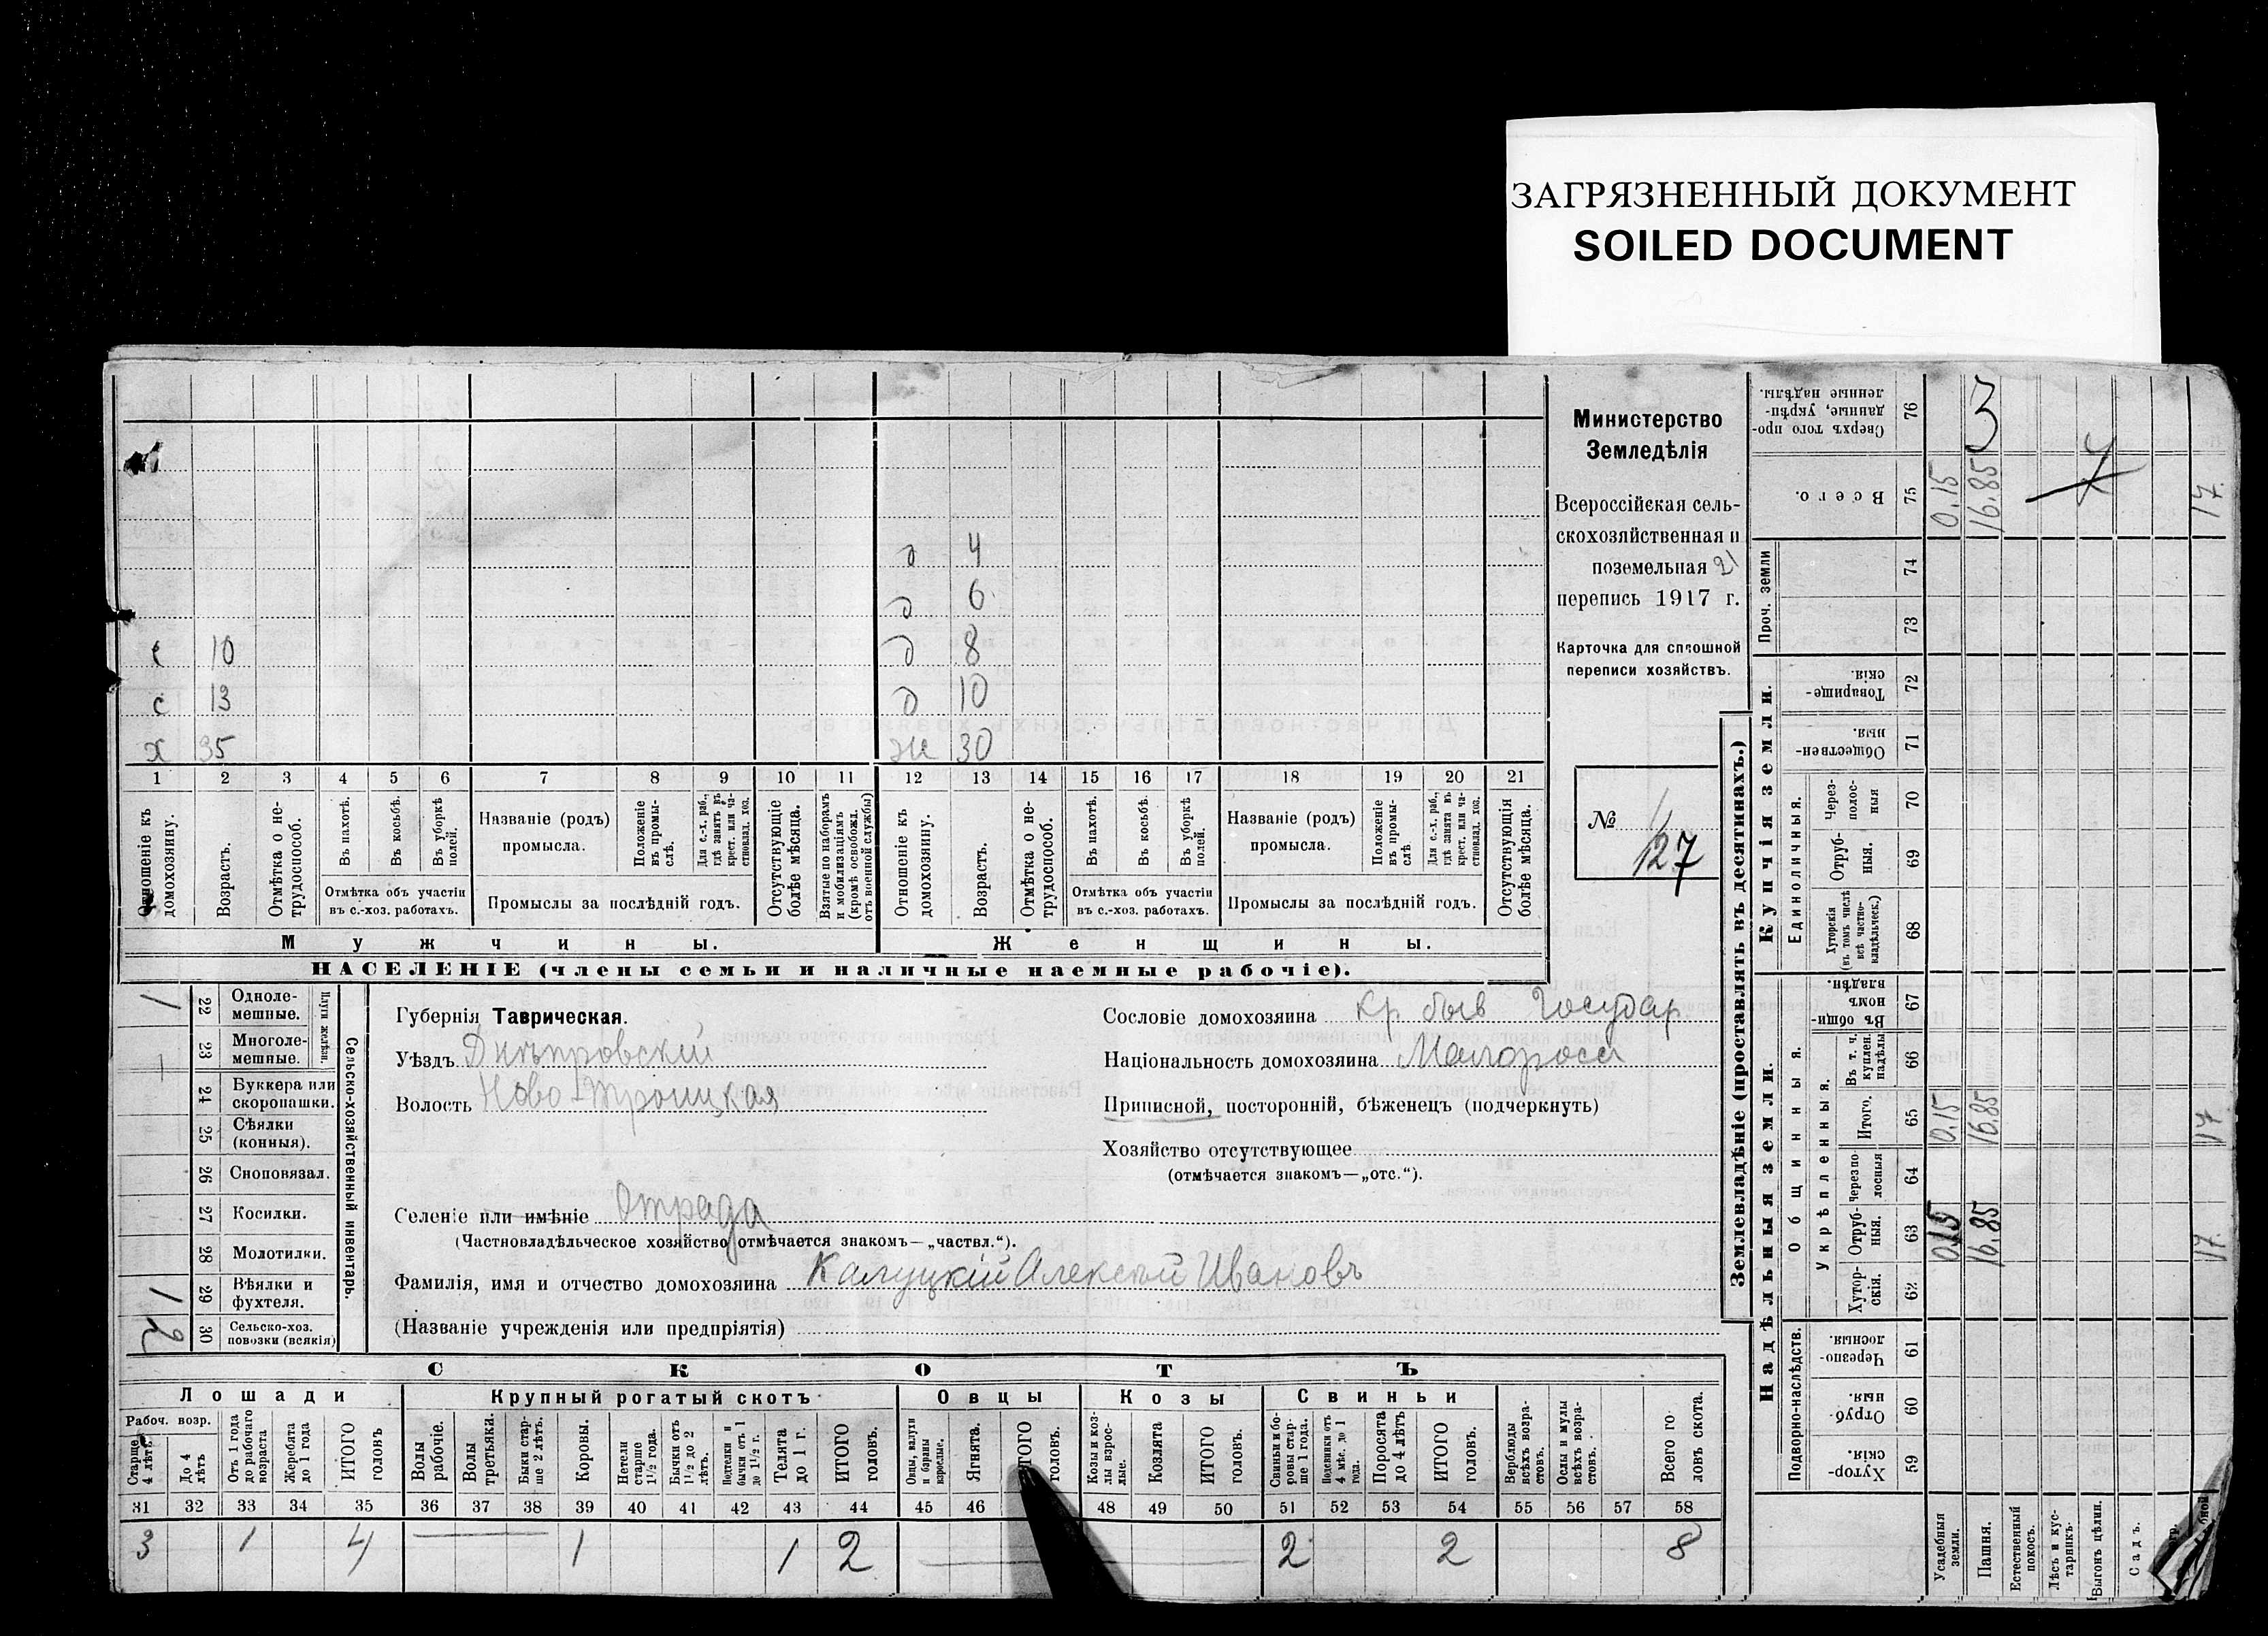 ЗАГРЯЗНЕННЫЙ ДОКУМЕНТ
SOILED DOCUMENT
Министерство
Земледѣлія
Всероссійская сель-
скохозяйственная и
поземельная 21
перепись 1917 г.
Карточка для сплошной
переписи хозяйствъ.
№ 127
д 4
д 6
с 10 д 8
с 13 д 10
х 35 ж 30
1 2 3 4 5 6 7 8 9 10 11 12 13 14 15 16 17 18 19 20 21
Отношеніе къ домохозяину.
Возрастъ.
Отмѣтка о не-трудоспособ.
Въ пахотѣ.
Въ косьбѣ.
Въ уборкѣ полей.
Отмѣтка объ участіи
въ с.-хоз. работахъ.
Названіе (родъ)
промысла.
Положеніе въ промы-слѣ.
Для с.-х. раб., гдѣ занятъ въ крест. или ча-стновлад. хоз.
Промыслы за послѣдній годъ.
Отсутствующіе болѣе мѣсяца.
Взятые по наборамъ и мобилизаціямъ (кромѣ освобожд. отъ военной службы)
Отношеніе къ домохозяину.
Возрастъ.
Отмѣтка о не-трудоспособ.
Въ пахотѣ.
Въ косьбѣ.
Въ уборкѣ полей.
Отмѣтка объ участіи
въ с.-хоз. работахъ.
Названіе (родъ)
промысла.
Положеніе въ промы-слѣ.
Для с.-х. раб., гдѣ занята въ крест. или ча-стновлад. хоз.
Промыслы за послѣдній годъ.
Отсутствующія болѣе мѣсяца.
Мужчины. Женщины.
НАСЕЛЕНІЕ (члены семьи и наличные наемные рабочіе).
Сельско-хозяйственный инвентарь.
Плуги желѣзн.
1 22 Одноле-мешные.
1 23 Многоле-мешные.
24 Буккера или скоропашки.
25 Сѣялки (конныя).
26 Сноповязал.
27 Косилки.
28 Молотилки.
1 29 Вѣялки и фухтеля.
2 30 Сельско-хоз. повозки (всякія)
Губернія Таврическая.
Уѣздъ Днѣпровскій
Волость Ново-Троицкая
Сословіе домохозяина кр. быв Государ
Національность домохозяина Малоросс
Приписной, посторонній, бѣженецъ (подчеркнуть)
Хозяйство отсутствующее
(отмѣчается знакомъ—„отс.“).
Селеніе или имѣніе Отрада
(Частновладѣльческое хозяйство отмѣчается знакомъ—„частвл.“).
Фамилія, имя и отчество домохозяина Калуцкій Алексѣй Ивановъ
(Названіе учрежденія или предпріятія)
СКОТЪ
Лошади Крупный рогатый скотъ Овцы Козы Свиньи
Рабоч. возр.
Старше 4 лѣтъ
До 4 лѣтъ
Отъ 1 года до рабочаго возраста
Жеребята до 1 года
ИТОГО головъ
Волы рабочіе.
Волы третьяки.
Быки стар-ше 2 лѣтъ.
Коровы.
Нетели старше 1½ года.
Бычки отъ 1½ до 2 лѣтъ.
Подтелки и бычки отъ 1 до 1½ г.
Телята до 1 г.
ИТОГО головъ.
Овцы, валухи и бараны взрослые.
Ягнята.
ИТОГО головъ.
Козы и коз-лы взрос-лые.
Козлята
ИТОГО головъ.
Свиньи и бо-ровы стар-ше 1 года.
Подсвинки отъ 4 мѣс. до 1 года.
Поросята до 4 лѣтъ
ИТОГО головъ.
Верблюды всѣхъ возра-стовъ.
Ослы и мулы всѣхъ возра-стовъ.
Всего го-ловъ скота.
31 32 33 34 35 36 37 38 39 40 41 42 43 44 45 46 48 49 50 51 52 53 54 55 56 57 58
3 1 4 1 1 2 2 2 8
Землевладѣніе (проставлять въ десятинахъ.)
Надѣльныя земли. Купчія земли. Проч. земли
Подворно-наслѣдств.
Общинныя.
Укрѣпленныя.
Единоличныя.
Сверхъ того про-данные, укрѣп-ленные надѣлы. 76 3
Всего. 75 0.15 16.85 17.
74
73
Товарище-скія. 72
Обществен-ныя. 71
Через-полос-ныя 70
Отруб-ныя. 69
Хуторскія (въ томъ числѣ всѣ частно-владѣльческ.) 68
Въ общи-номъ владѣн. 67
Въ т. ч. куплен. надѣлы 66
Итого. 65 0.15 16.85 17
Черезпо-лосныя 64
Отруб-ныя. 63 0.15 16.85 17.
Хутор-скія. 62
Черезпо-лосныя 61
Отруб-ныя. 60
Хутор-скія. 59
Усадебныя земли.
Пашня.
Естественный покосъ.
Лѣсъ и кус-тарникъ.
Выгонъ цѣлин.
Садъ.